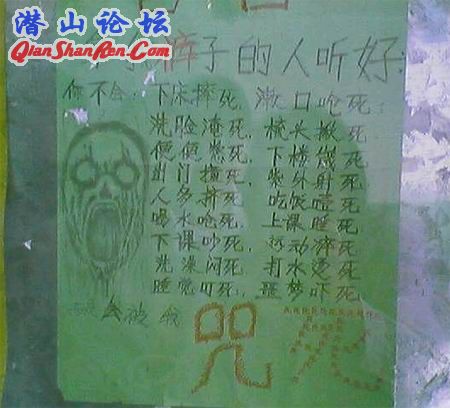 潜山论坛
QianShanRen.Com
裤子的人听好:
你不会: 下床摔死, 漱口呛死:
洗脸淹死, 梳头死
便便死, 下楼崴死
出门横死, 紫外射死
人多挤死, 吃饭噎死
喝水呛死, 上课睡死
下课吵死, 运动猝死
洗澡闷死, 打水烫死
睡觉叮死, 噩梦吓死
会被我 咒死